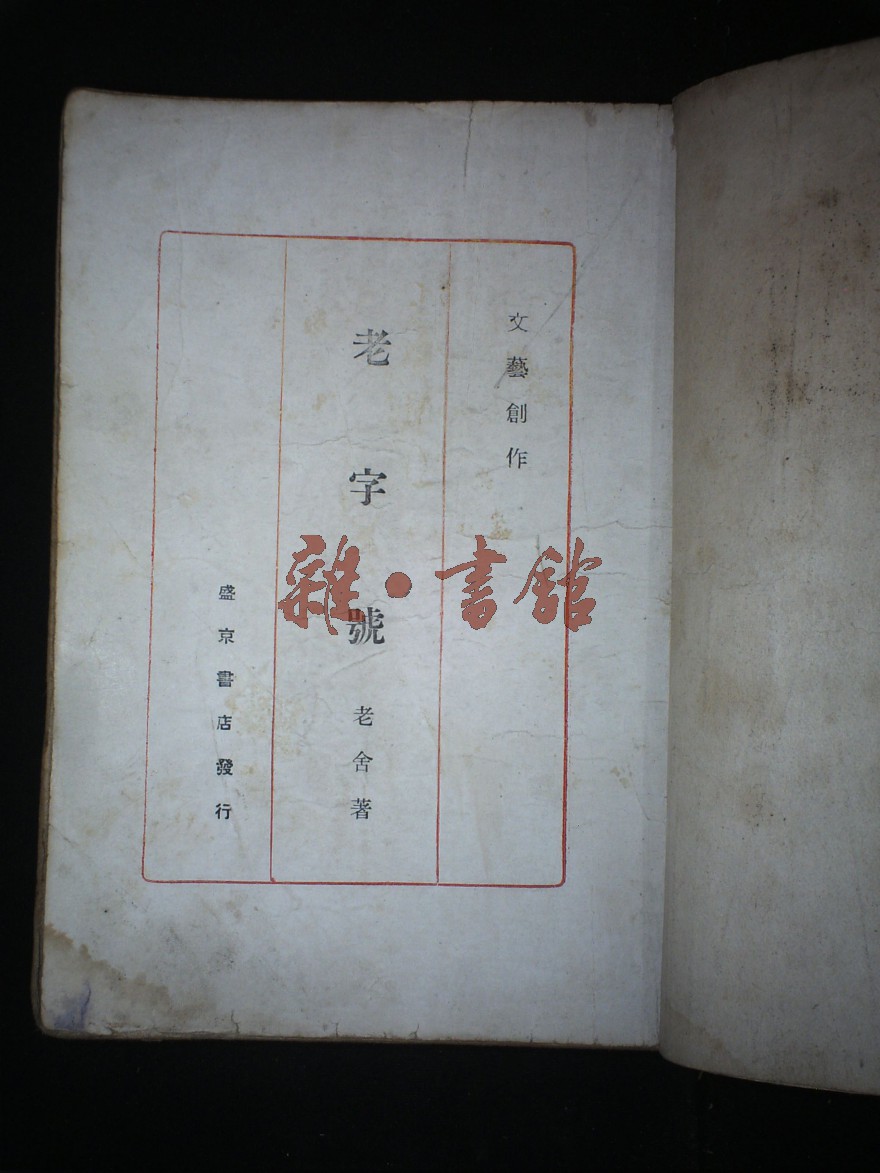 文藝創作
老字號 老舍著
盛京書店發行
雜·書館